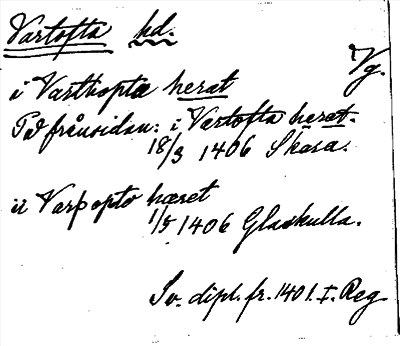 Vartofta hd.
Vg.
i Varthopta herat
På frånsidan: i Vartofta herat.
18/3 1406 Skara.
ir Varþopto hæret
1/5 1406 Gladkulla.
Sv. dipl. fr. 1401. I. Reg